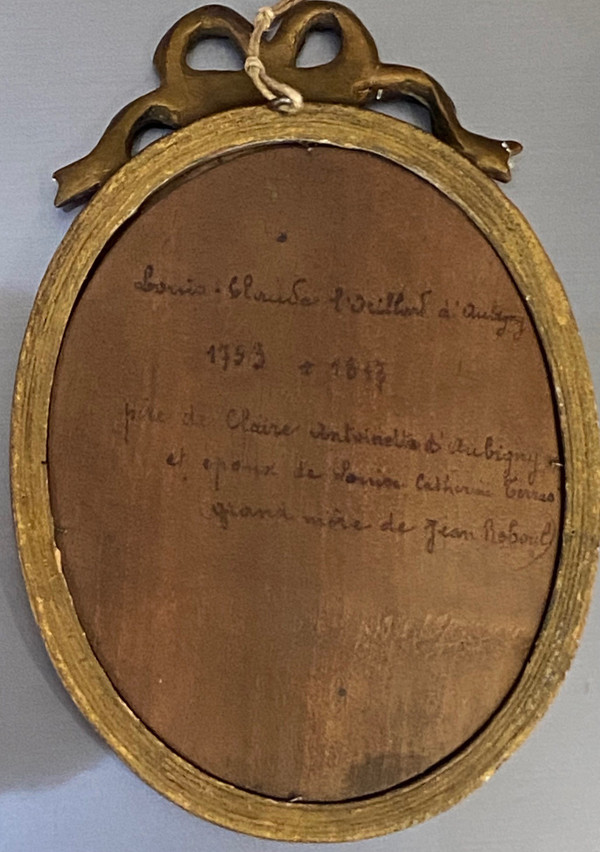 Louis-Claude l'Oeillard d'Aubigny
1753 +
père de Claire Antoinette d'Aubigny
et epoux de Louise Catherine
grand mère de Jean Reboul